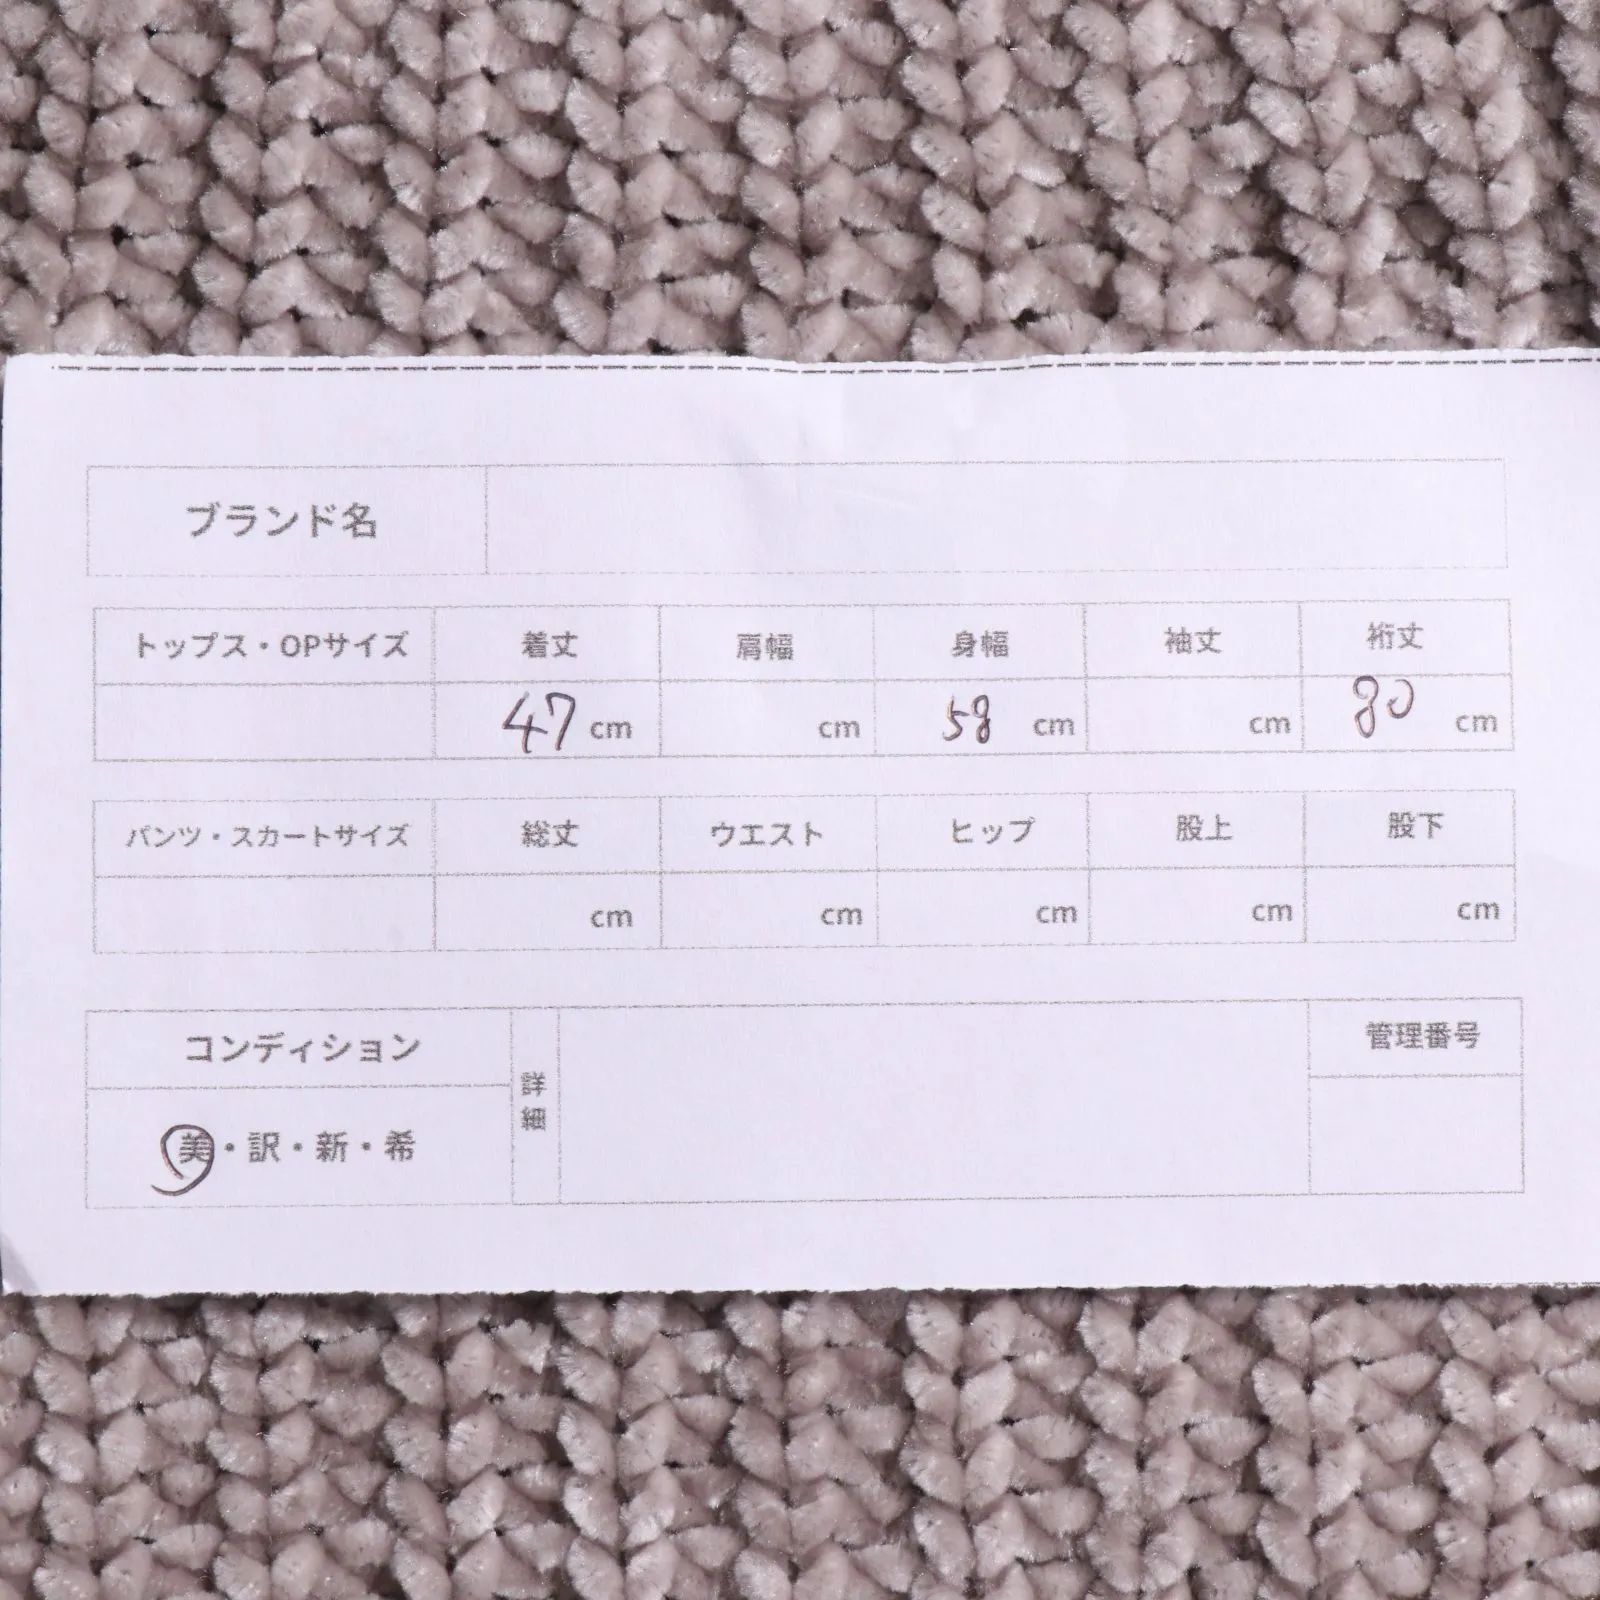 ブランド名
トップス・OPサイズ 着丈 肩幅 身幅 袖丈 裄丈
47 cm cm 58 cm cm 80 cm
パンツ・スカートサイズ 総丈 ウエスト ヒップ 股上 股下
cm cm cm cm cm
コンディション 詳細 管理番号
美・訳・新・希